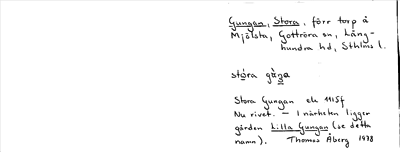 Gungan, Stora, förr torp å
Mjölsta, Gottröra sn, Lång-
hundra hd, Sthlms l.
stóra gàŋa
Stora Gungan ek 1115f
Nu rivet. – I närheten ligger
gården Lilla Gungan (se detta
namn). Thomas Åberg 1978